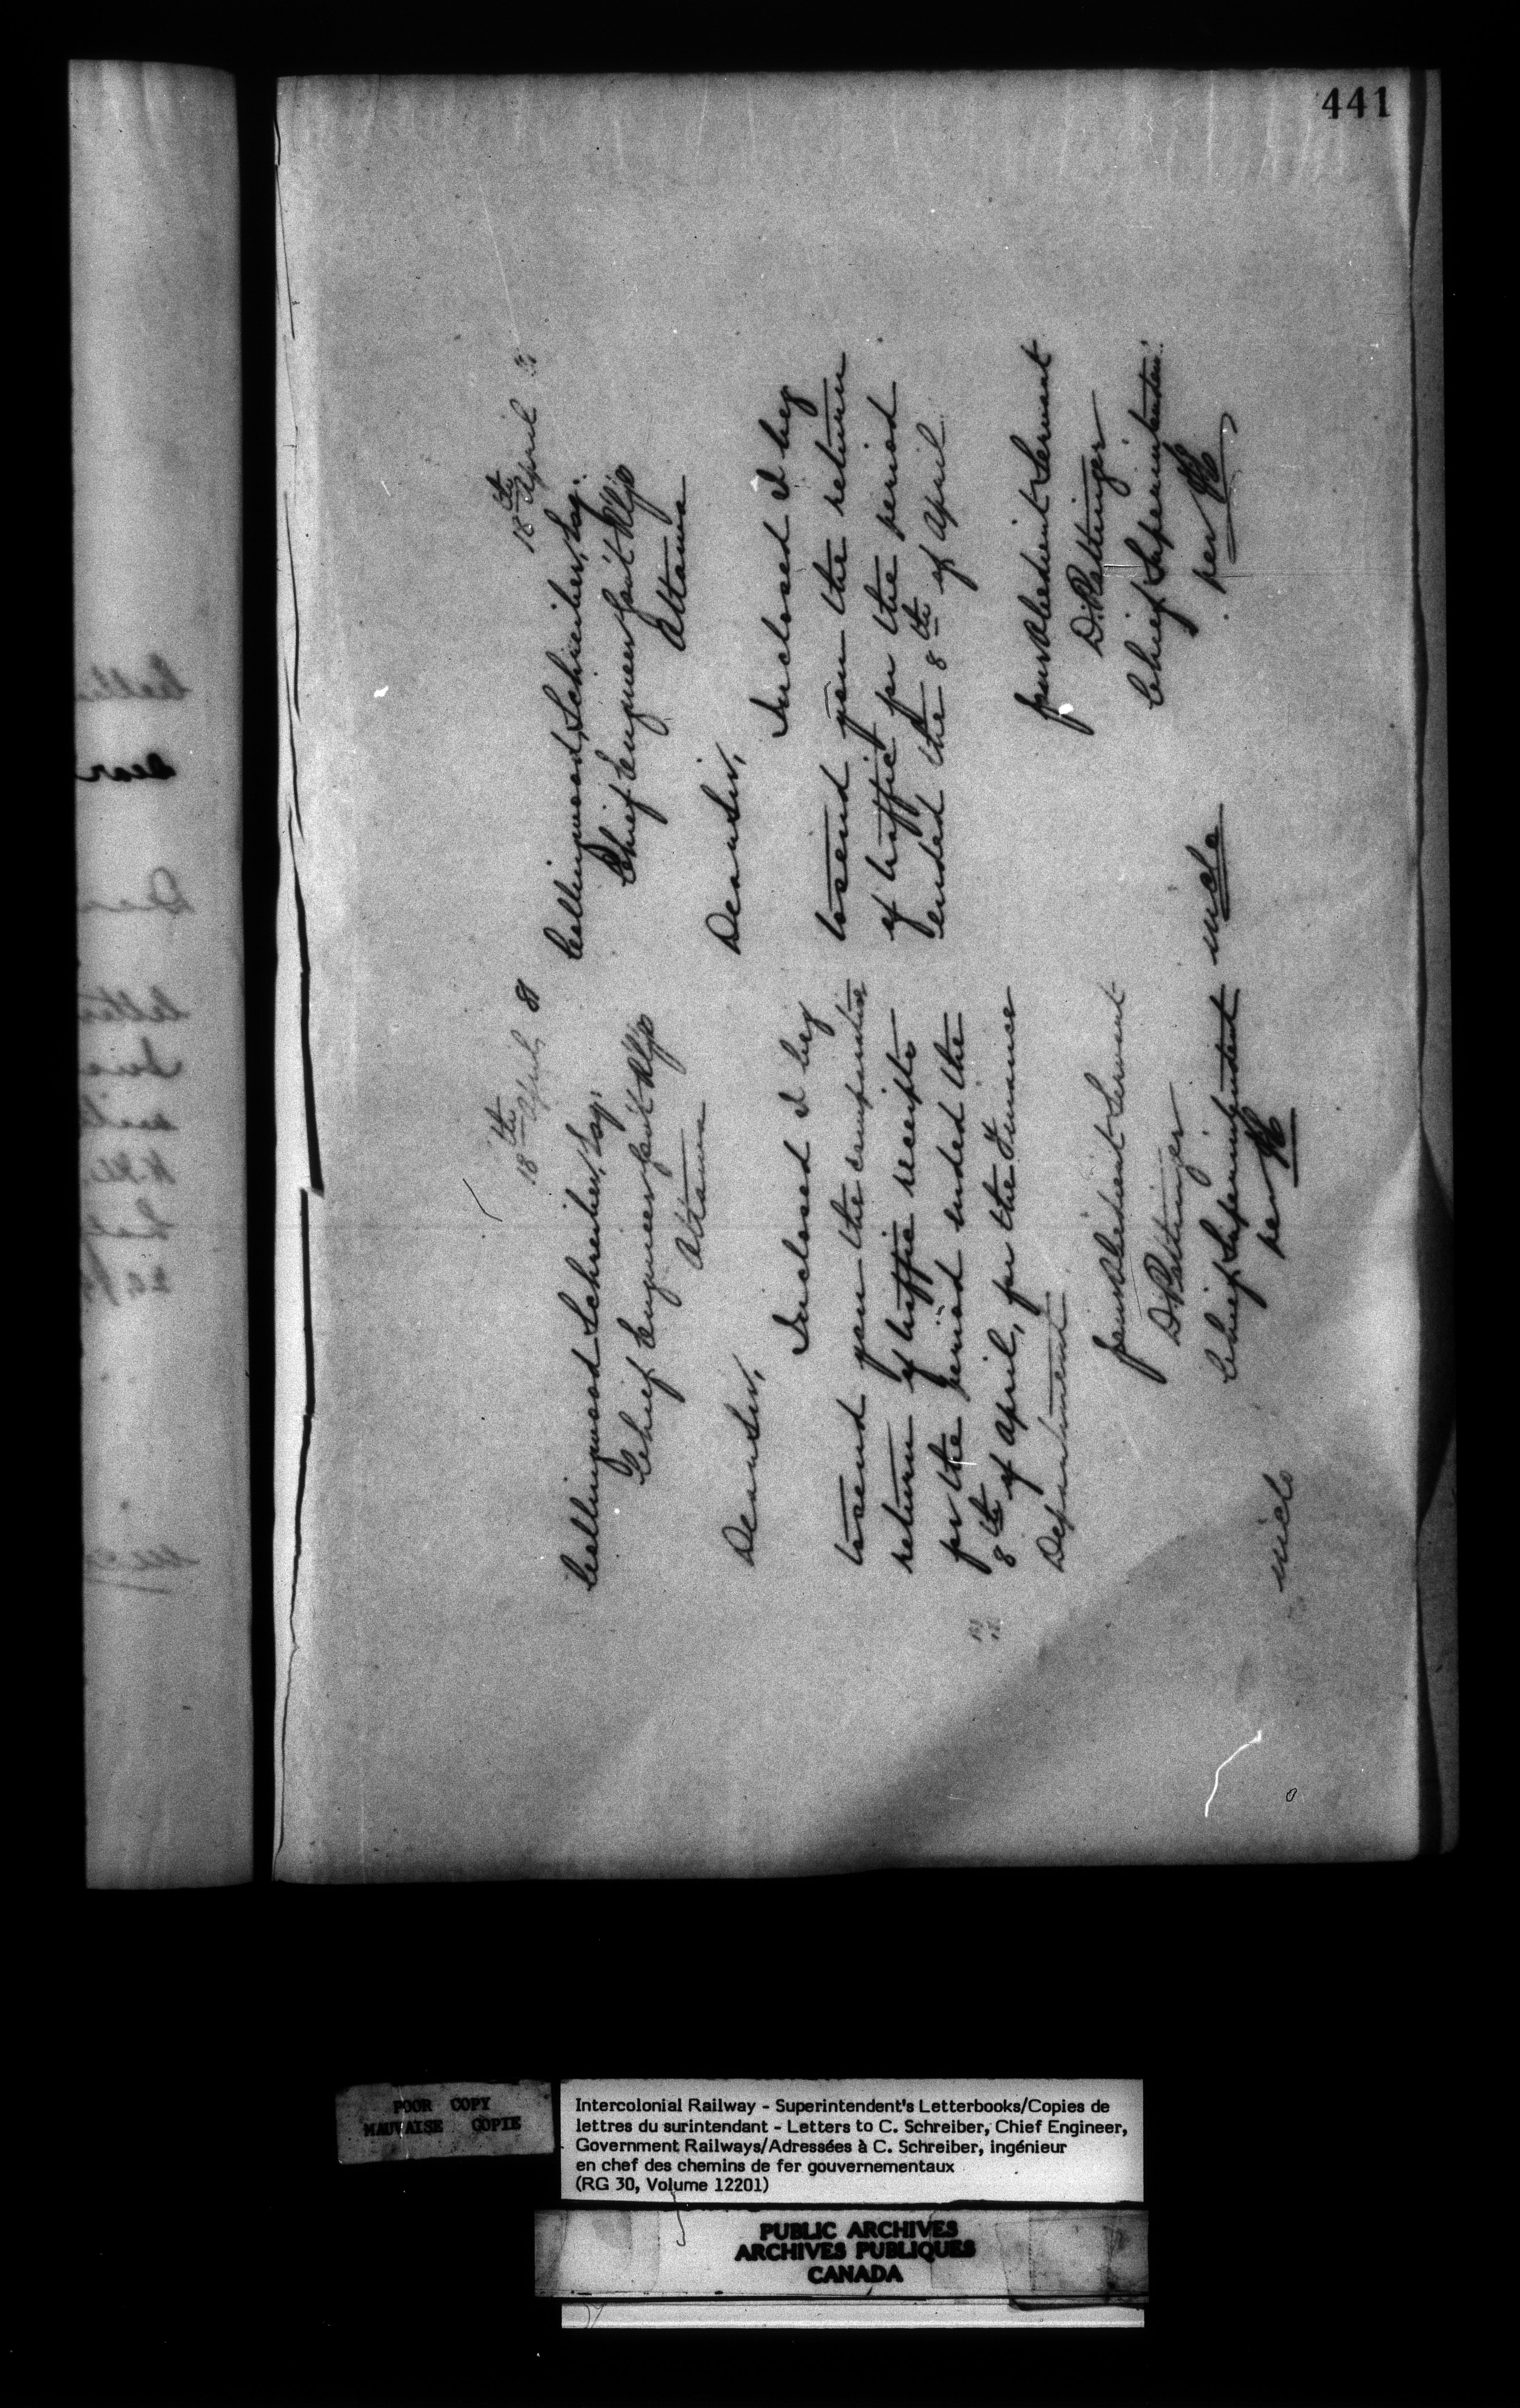 441
18th April, 81
Collingwood Schreiber, Esq.
Chief Engineer Gov't Rlys
Ottawa
Dear Sir,
Inclosed I beg
to send you the comparative
return of traffic receipts
for the period ended the
8th of April, for the Finance
Department
Your Obedient Servant
D. Pottinger
Chief Superintendent
per
incls
18th April
Collingwood Schreiber, Esq.
Chief Engineer Gov't Rlys
Ottawa
Dear Sir,
Inclosed I beg
to send you the return
of traffic for the period
ended the 8th of April
Your Obedient Servant
D. Pottinger
Chief Superintendent
per
incls
POOR COPY
MAUVAISE COPIE
Intercolonial Railway - Superintendent's Letterbooks/Copies de
lettres du surintendant - Letters to C. Schreiber, Chief Engineer,
Government Railways/Adressées à C. Schreiber, ingénieur
en chef des chemins de fer gouvernementaux
(RG 30, Volume 12201)
PUBLIC ARCHIVES
ARCHIVES PUBLIQUES
CANADA